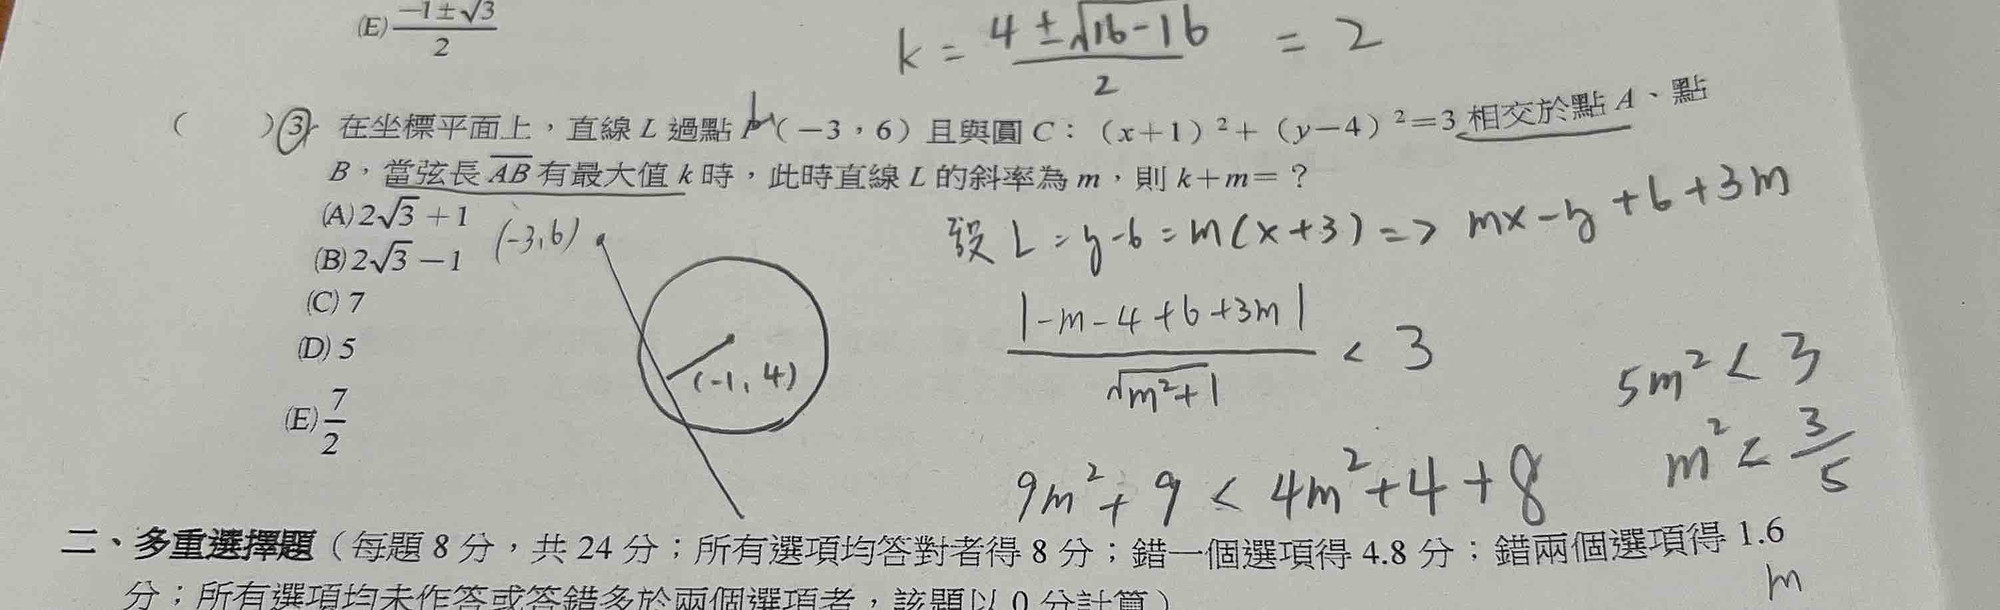 (E) \frac{-1±√3}{2}
k = \frac{4±√16-16}{2} = 2
( ) 3. 在坐標平面上，直線 L 過點 P（－3，6）且與圓 C：（x＋1）²＋（y－4）²＝3 相交於點 A、點
B，當弦長 \overline{AB} 有最大值 k 時，此時直線 L 的斜率為 m，則 k＋m＝？
(A) 2√3＋1
(B) 2√3－1
(C) 7
(D) 5
(E) \frac{7}{2}
(-3,6)
(-1, 4)
設 L = y-6 = m(x+3) => mx-y+6+3m
\frac{|-m-4+6+3m|}{√m²+1} < 3
9m²+9 < 4m²+4+8
5m² < 3
m² < \frac{3}{5}
m
二、多重選擇題（每題 8 分，共 24 分；所有選項均答對者得 8 分；錯一個選項得 4.8 分；錯兩個選項得 1.6
分；所有選項均未作答或答錯多於兩個選項者，該題以 0 分計算）